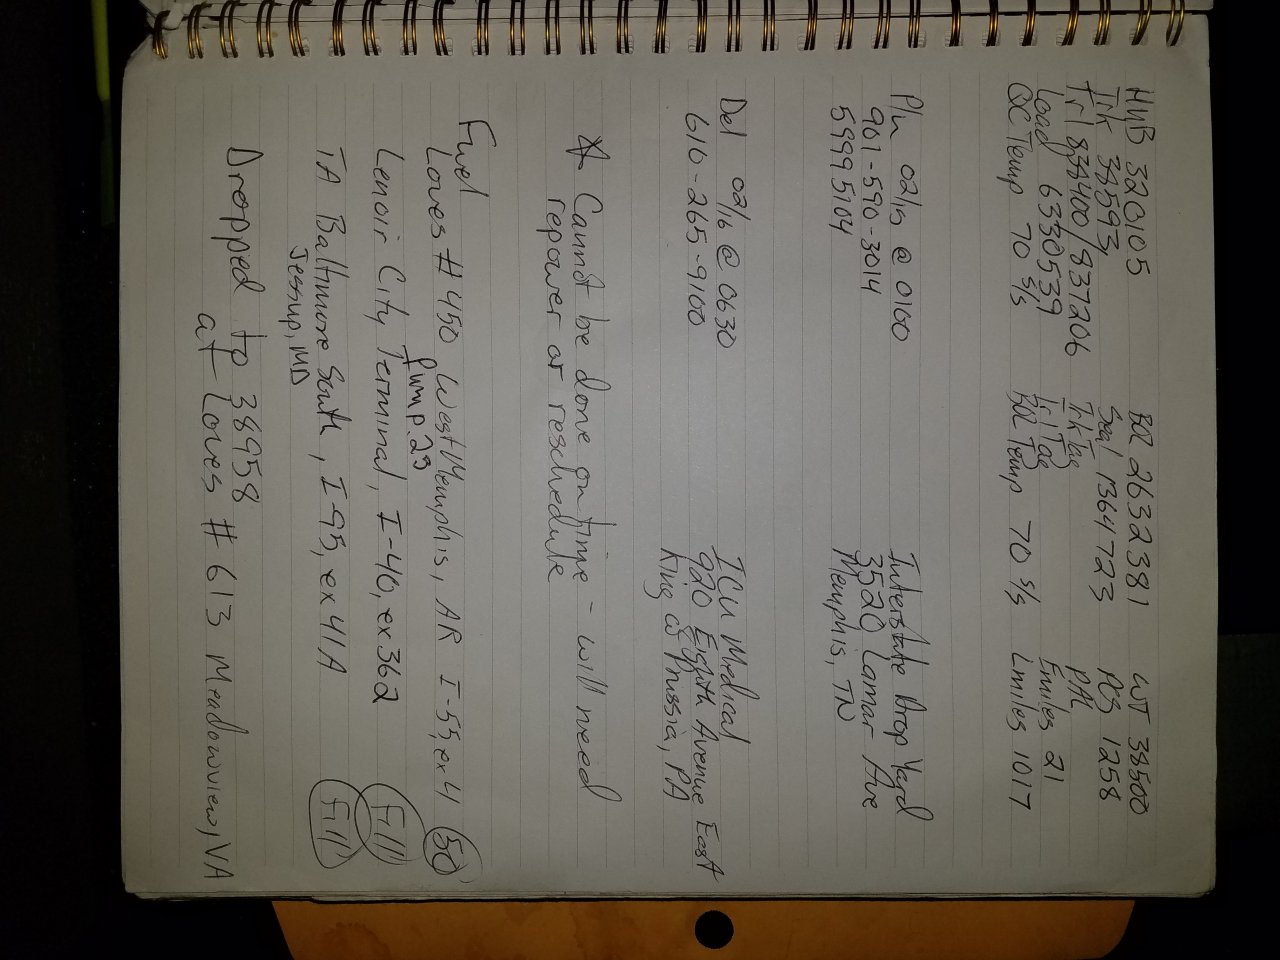 HUB 320105 BOL 2632381 WT 38500
Trk 38593 Seal 1364723 PCS 1258
Trl 838400/837206 Trk Tag PA
Load 6330539 Trl Tag Emiles 21
QC Temp 70 s/s BOL Temp 70 s/s Lmiles 1017
P/u 02/15 @ 0100 Interstate Drop Yard
901-590-3014 3520 Lamar Ave
59995104 Memphis, TN
Del 02/16 @ 0630 ICU Medical
610-265-9100 920 Eighth Avenue East
King of Prussia, PA
* Cannot be done on time - will need
repower or reschedule
Fuel
Loves # 450 West Memphis, AR I-55, ex 4 50
Pump 23
Lenoir City Terminal, I-40, ex 362 Fill
TA Baltimore South, I-95, ex 41A Fill
Jessup, MD
Dropped to 38958
at Loves # 613 Meadowview, VA